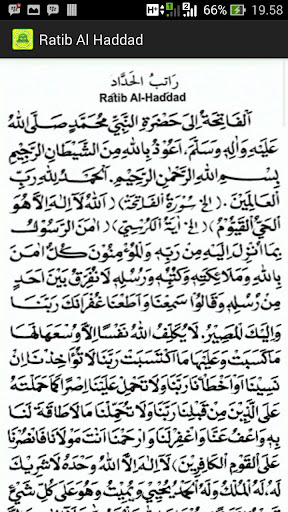 66% 19.58
Ratib Al Haddad
رَاتِبُ الْحَدَّاد
Ratib Al-Haddad
اَلْفَاتِحَةُ اِلَى حَضْرَةِ النَّبِيِّ مُحَمَّدٍ صَلَّى اللهُ
عَلَيْهِ وَاٰلِهِ وَسَلَّمَ. اَعُوْذُ بِاللهِ مِنَ الشَّيْطَانِ الرَّجِيْمِ
بِسْمِ اللهِ الرَّحْمٰنِ الرَّحِيْمِ. اَلْحَمْدُ لِلّٰهِ رَبِّ
الْعَالَمِيْنَ. (الخ سُوْرَةُ الْفَاتِحَةِ) اَللهُ لَا اِلٰهَ اِلَّا هُوَ
الْحَيُّ الْقَيُّوْمُ (الخ اٰيَةُ الْكُرْسِيِّ) اٰمَنَ الرَّسُوْلُ
بِمَا اُنْزِلَ اِلَيْهِ مِنْ رَبِّهِ وَالْمُؤْمِنُوْنَ كُلٌّ اٰمَنَ
بِاللهِ وَمَلَائِكَتِهِ وَكُتُبِهِ وَرُسُلِهِ لَا نُفَرِّقُ بَيْنَ اَحَدٍ
مِنْ رُسُلِهِ وَقَالُوْا سَمِعْنَا وَاَطَعْنَا غُفْرَانَكَ رَبَّنَا
وَاِلَيْكَ الْمَصِيْرُ. لَا يُكَلِّفُ اللهُ نَفْسًا اِلَّا وُسْعَهَا لَهَا
مَا كَسَبَتْ وَعَلَيْهَا مَا اكْتَسَبَتْ رَبَّنَا لَا تُؤَاخِذْنَا اِنْ
نَسِيْنَا اَوْ اَخْطَأْنَا رَبَّنَا وَلَا تَحْمِلْ عَلَيْنَا اِصْرًا كَمَا حَمَلْتَهُ
عَلَى الَّذِيْنَ مِنْ قَبْلِنَا رَبَّنَا وَلَا تُحَمِّلْنَا مَا لَا طَاقَةَ لَنَا
بِهِ وَاعْفُ عَنَّا وَاغْفِرْ لَنَا وَارْحَمْنَا اَنْتَ مَوْلَانَا فَانْصُرْنَا
عَلَى الْقَوْمِ الْكَافِرِيْنَ (لَا اِلٰهَ اِلَّا اللهُ وَحْدَهُ لَا شَرِيْكَ
لَهُ لَهُ الْمُلْكُ وَلَهُ الْحَمْدُ يُحْيِيْ وَيُمِيْتُ وَهُوَ عَلَى كُلِّ شَيْءٍ